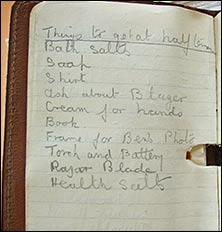 Things to get at half term
Bath Salts
Soap
Shirt
Ask about Blazer
Cream for hands
Book
Frame for Bert's Photo
Torch and Battery
Razor Blade
Health Salts